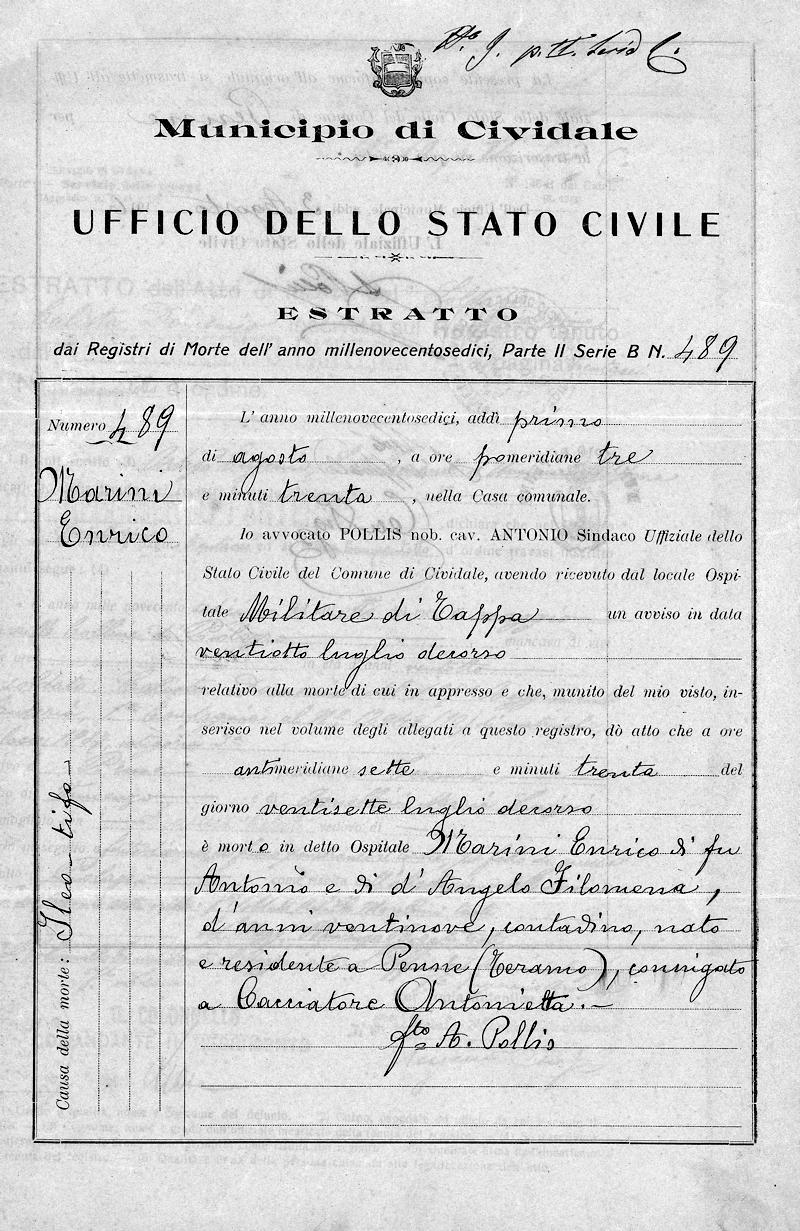 Municipio di Cividale
UFFICIO DELLO STATO CIVILE
ESTRATTO
dai Registri di Morte dell' anno millenovecentosedici, Parte II Serie B N. 489
Numero 489
Marini
Enrico
Causa della morte: Ileo-tifo
L' anno millenovecentosedici, addì primo
di agosto, a ore pomeridiane tre
e minuti trenta, nella Casa comunale.
Io avvocato POLLIS nob. cav. ANTONIO Sindaco Uffiziale dello
Stato Civile del Comune di Cividale, avendo ricevuto dal locale Ospi-
tale Militare di Tappa un avviso in data
ventiotto luglio decorso
relativo alla morte di cui in appresso e che, munito del mio visto, in-
serisco nel volume degli allegati a questo registro, dò atto che a ore
antimeridiane sette e minuti trenta del
giorno ventisette luglio decorso
è morto in detto Ospitale Marini Enrico di fu
Antonio e di d'Angelo Filomena,
d'anni ventinove, contadino, nato
e residente a Penne (Teramo), coniugato
a Cacciatore Antonietta.-
fto A. Pollis